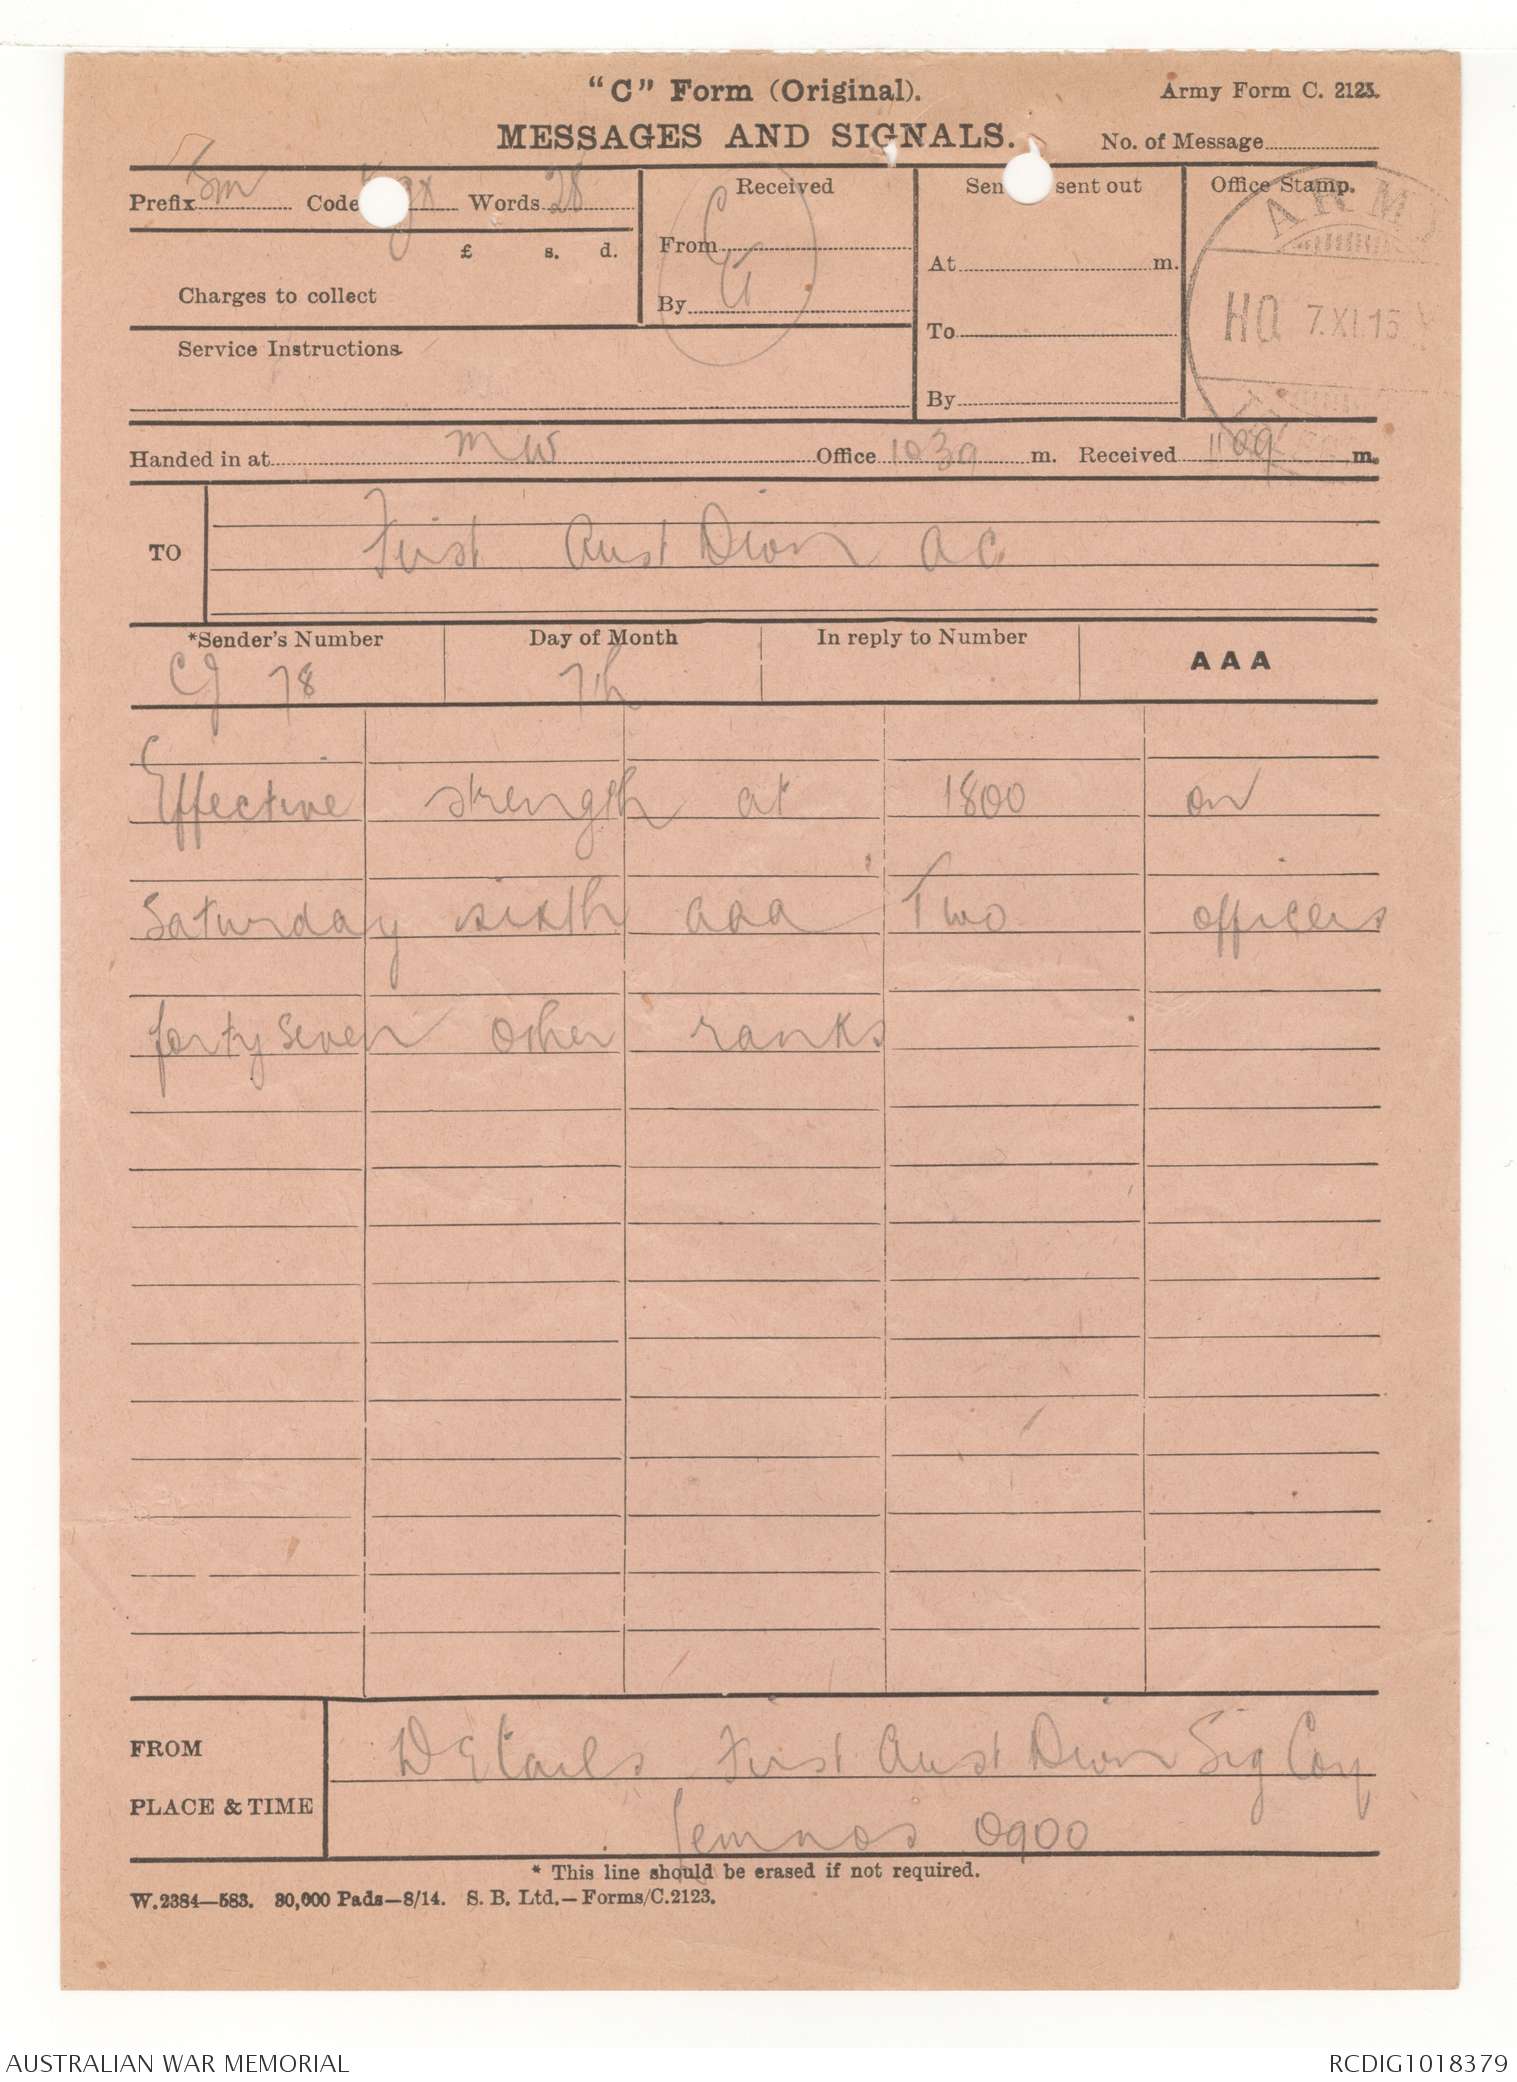 "C" Form (Original). Army Form C. 2123.
MESSAGES AND SIGNALS. No. of Message
Prefix Sm Code Words 28
£ s. d.
Charges to collect
Service Instructions.
Received
From
By
Sent sent out
At m.
To
By
Office Stamp.
ARMY
HQ 7.XI.15
Handed in at MW Office 1039 m. Received 1109 m.
TO First Aust Divn AC
*Sender's Number Day of Month In reply to Number AAA
CJ 78 7th
Effective strength at 1800 on
Saturday sixth aaa Two officers
forty seven other ranks
FROM Details First Aust Divn Sig Coy
PLACE & TIME Lemnos 0900
* This line should be erased if not required.
W.2384—583. 30,000 Pads—8/14. S. B. Ltd.—Forms/C.2123.
AUSTRALIAN WAR MEMORIAL RCDIG1018379